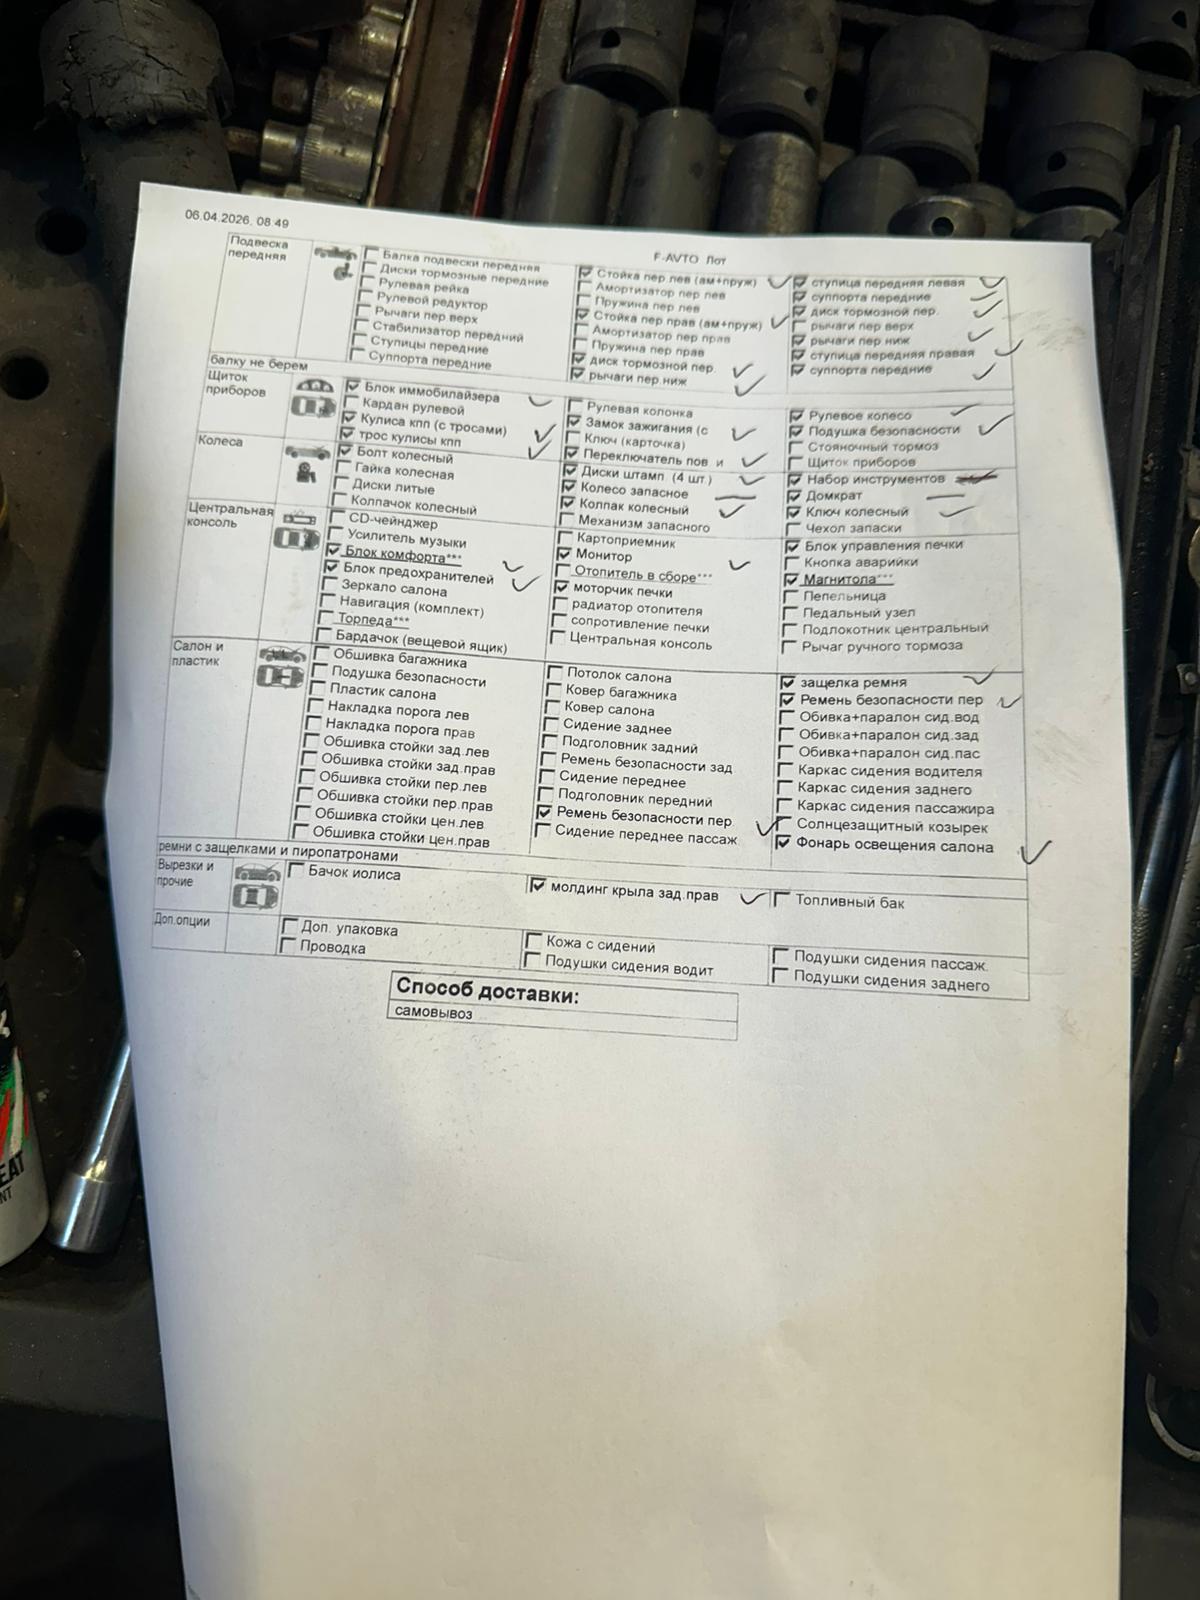 06.04.2026, 08:49
F-AVTO Лот
Подвеска передняя
Балка подвески передняя
Диски тормозные передние
Рулевая рейка
Рулевой редуктор
Рычаги пер верх
Стабилизатор передний
Ступицы передние
Суппорта передние
Стойка пер лев (ам+пруж)
Амортизатор пер лев
Пружина пер лев
Стойка пер прав (ам+пруж)
Амортизатор пер прав
Пружина пер прав
диск тормозной пер.
рычаги пер.ниж
ступица передняя левая
суппорта передние
диск тормозной пер.
рычаги пер верх
рычаги пер ниж
ступица передняя правая
суппорта передние
балку не берем
Щиток приборов
Блок иммобилайзера
Кардан рулевой
Кулиса кпп (с тросами)
трос кулисы кпп
Рулевая колонка
Замок зажигания (с
Ключ (карточка)
Переключатель пов и
Рулевое колесо
Подушка безопасности
Стояночный тормоз
Щиток приборов
Колеса
Болт колесный
Гайка колесная
Диски литые
Колпачок колесный
Диски штамп. (4 шт.)
Колесо запасное
Колпак колесный
Механизм запасного
Набор инструментов
Домкрат
Ключ колесный
Чехол запаски
Центральная консоль
CD-чейнджер
Усилитель музыки
Блок комфорта***
Блок предохранителей
Зеркало салона
Навигация (комплект)
Торпеда***
Бардачок (вещевой ящик)
Картоприемник
Монитор
Отопитель в сборе***
моторчик печки
радиатор отопителя
сопротивление печки
Центральная консоль
Блок управления печки
Кнопка аварийки
Магнитола***
Пепельница
Педальный узел
Подлокотник центральный
Рычаг ручного тормоза
Салон и пластик
Обшивка багажника
Подушка безопасности
Пластик салона
Накладка порога лев
Накладка порога прав
Обшивка стойки зад.лев
Обшивка стойки зад.прав
Обшивка стойки пер.лев
Обшивка стойки пер.прав
Обшивка стойки цен.лев
Обшивка стойки цен.прав
Потолок салона
Ковер багажника
Ковер салона
Сидение заднее
Подголовник задний
Ремень безопасности зад
Сидение переднее
Подголовник передний
Ремень безопасности пер.
Сидение переднее пассаж.
защелка ремня
Ремень безопасности пер
Обивка+паралон сид.вод
Обивка+паралон сид.зад
Обивка+паралон сид.пас
Каркас сидения водителя
Каркас сидения заднего
Каркас сидения пассажира
Солнцезащитный козырек
Фонарь освещения салона
ремни с защелками и пиропатронами
Вырезки и прочие
Бачок иолиса
молдинг крыла зад.прав
Топливный бак
Доп.опции
Доп. упаковка
Проводка
Кожа с сидений
Подушки сидения водит
Подушки сидения пассаж.
Подушки сидения заднего
Способ доставки:
самовывоз
EAT
NT